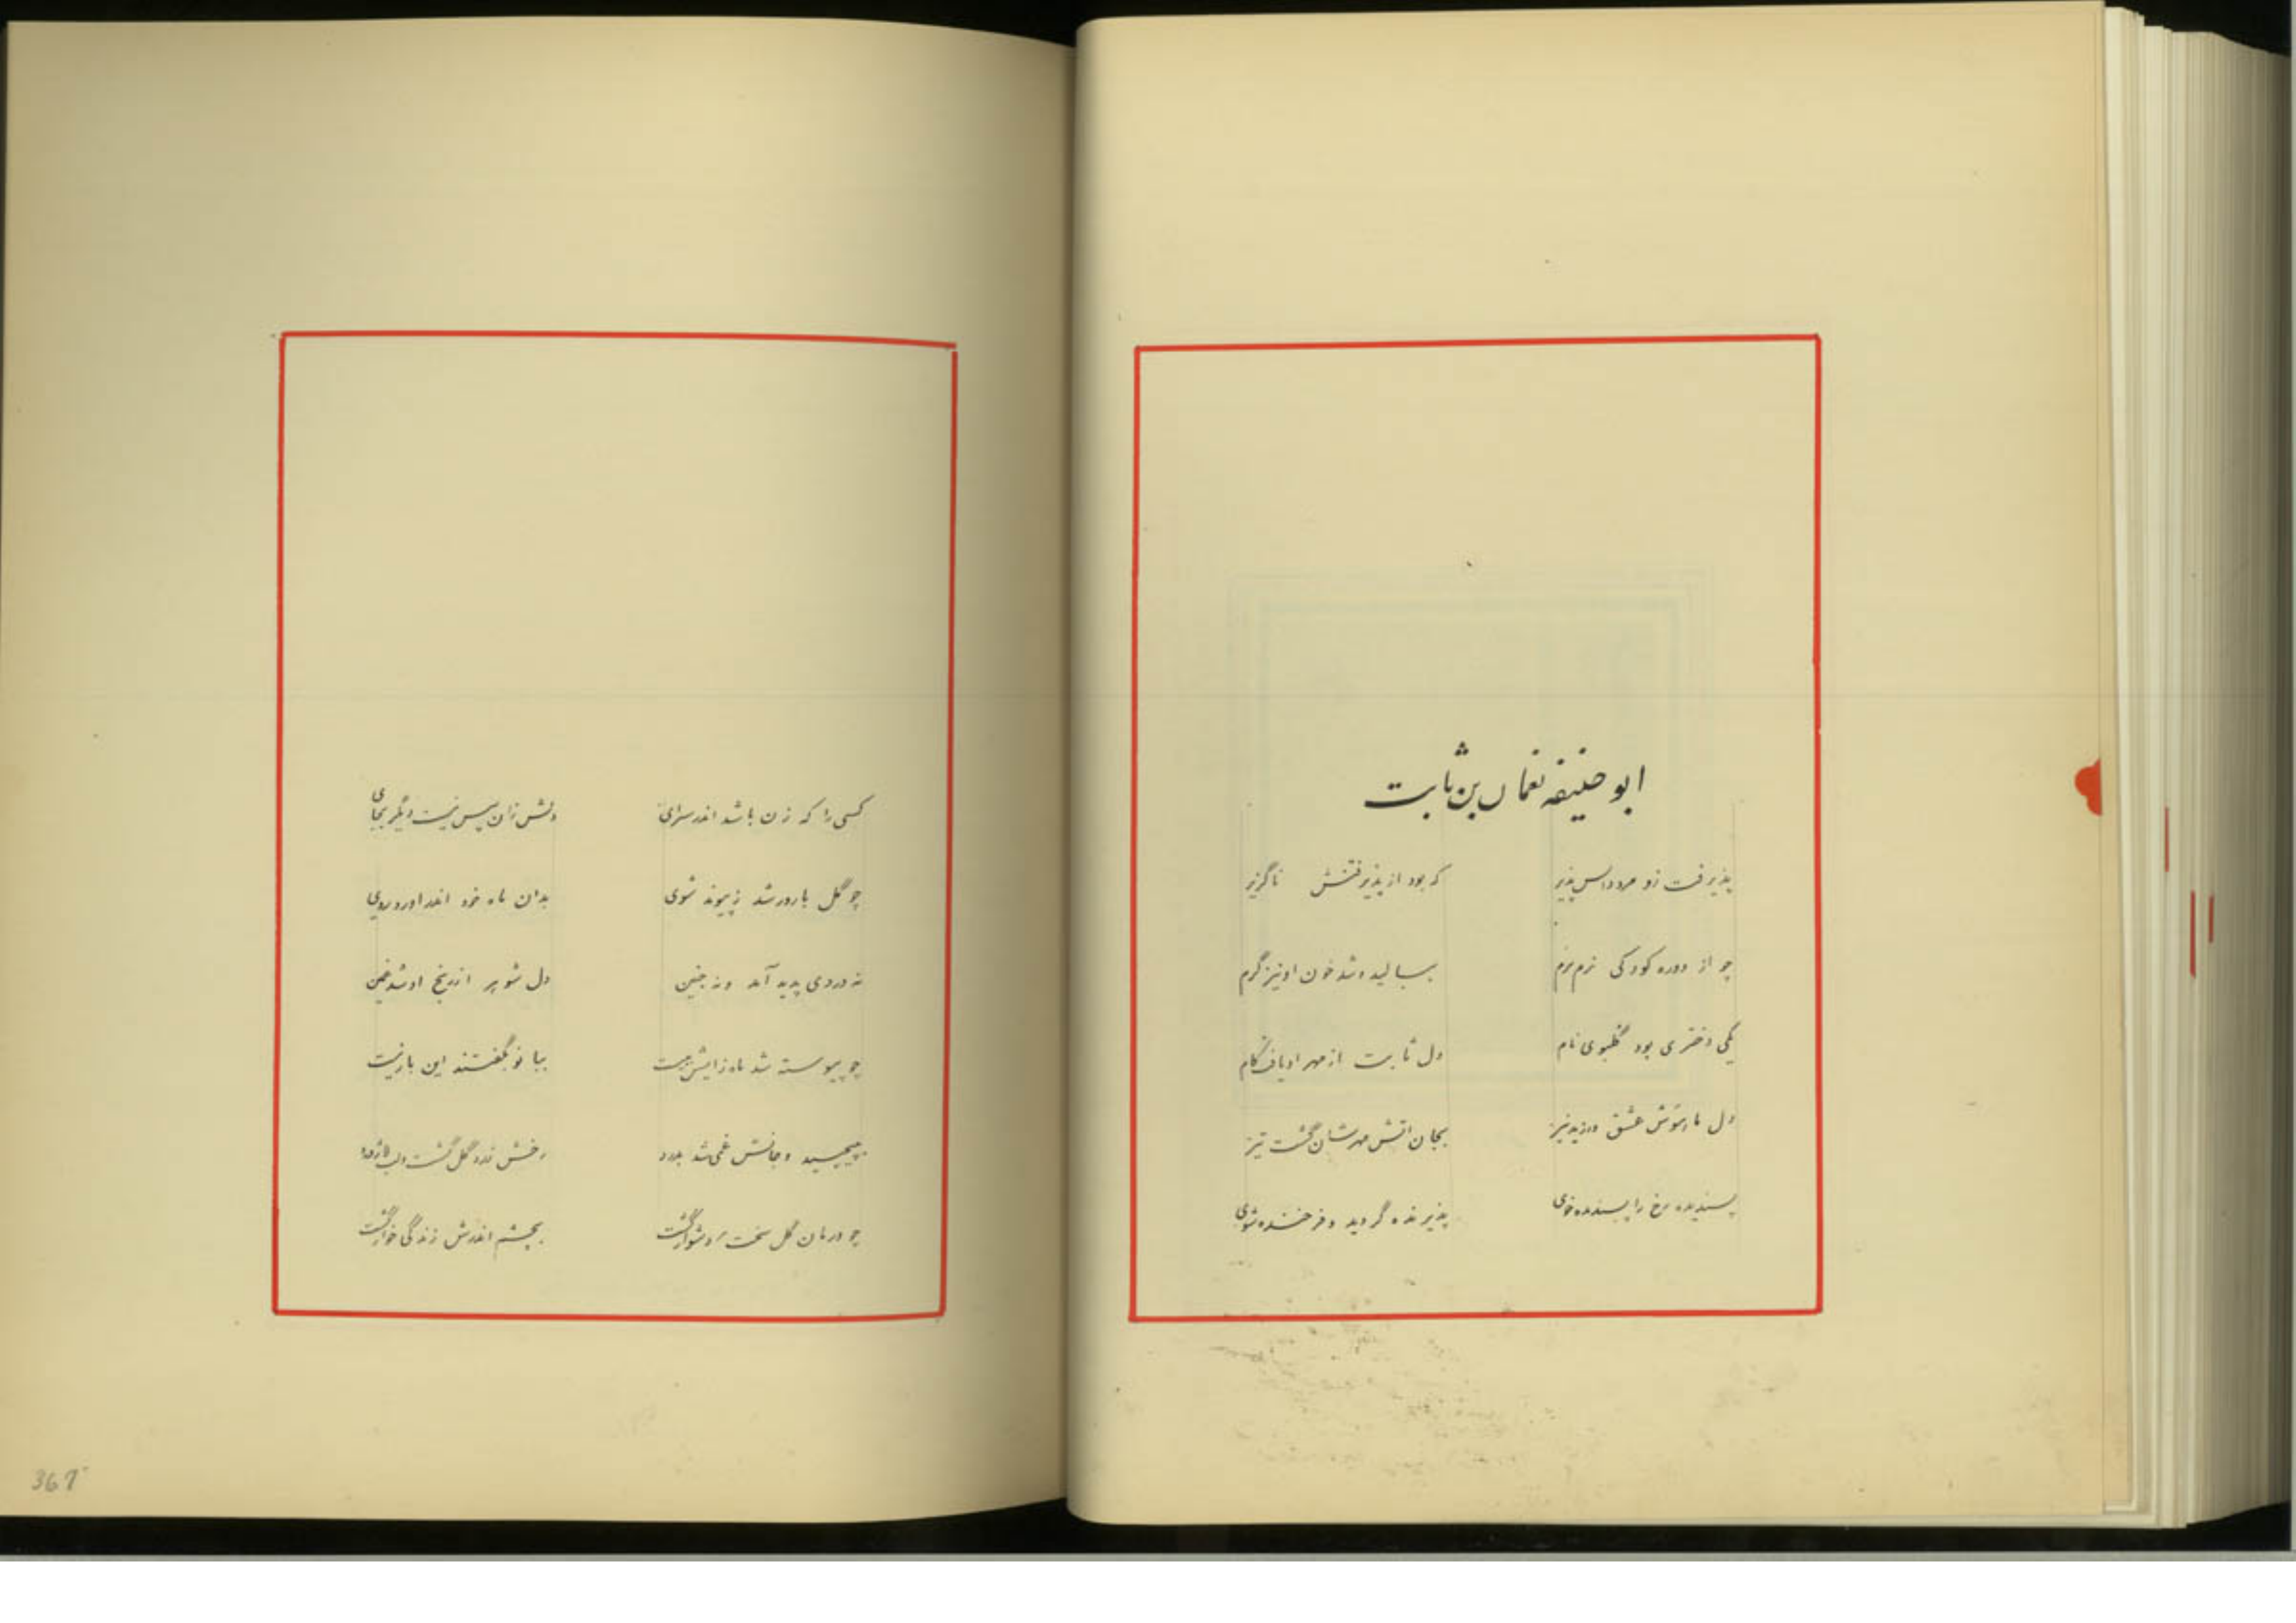 ابو حنیفه نعمان بن ثابت
پذیرفت زو مرد دانش پذیر که بود از پذیرفتنش ناگزیر
چو از دوره کودکی نرم نرم ببالید و شد خون او نیز گرم
یکی دختری بود گلبوی نام دل ثابت از مهر او یافت کام
دل مارسوش عشق ورزید نیز بجان آتش مهرشان گشت تیز
پسندیده رخ را پسندیده خوی پذیرنده گردید و فرخنده شوی
کسی را که زن باشد اندر سرای دلش زان پس نیست دیگر بجای
چو گل بارور شد ز پیوند شوی بدان ماه خود اندر اورد روی
نه دردی پدید آمد و نه جنین دل شوهر از رنج او شد غمین
چو پیوسته شد ماه زایش بیست ببا نو بگفتند این بار نیست
بپیچید و جانش غمی شد بدرد رخش زرد گل گشت و لب لاژورد
چو درمان گل سخت و دشوار گشت بچشم اندرش زندگی خوار گشت
369